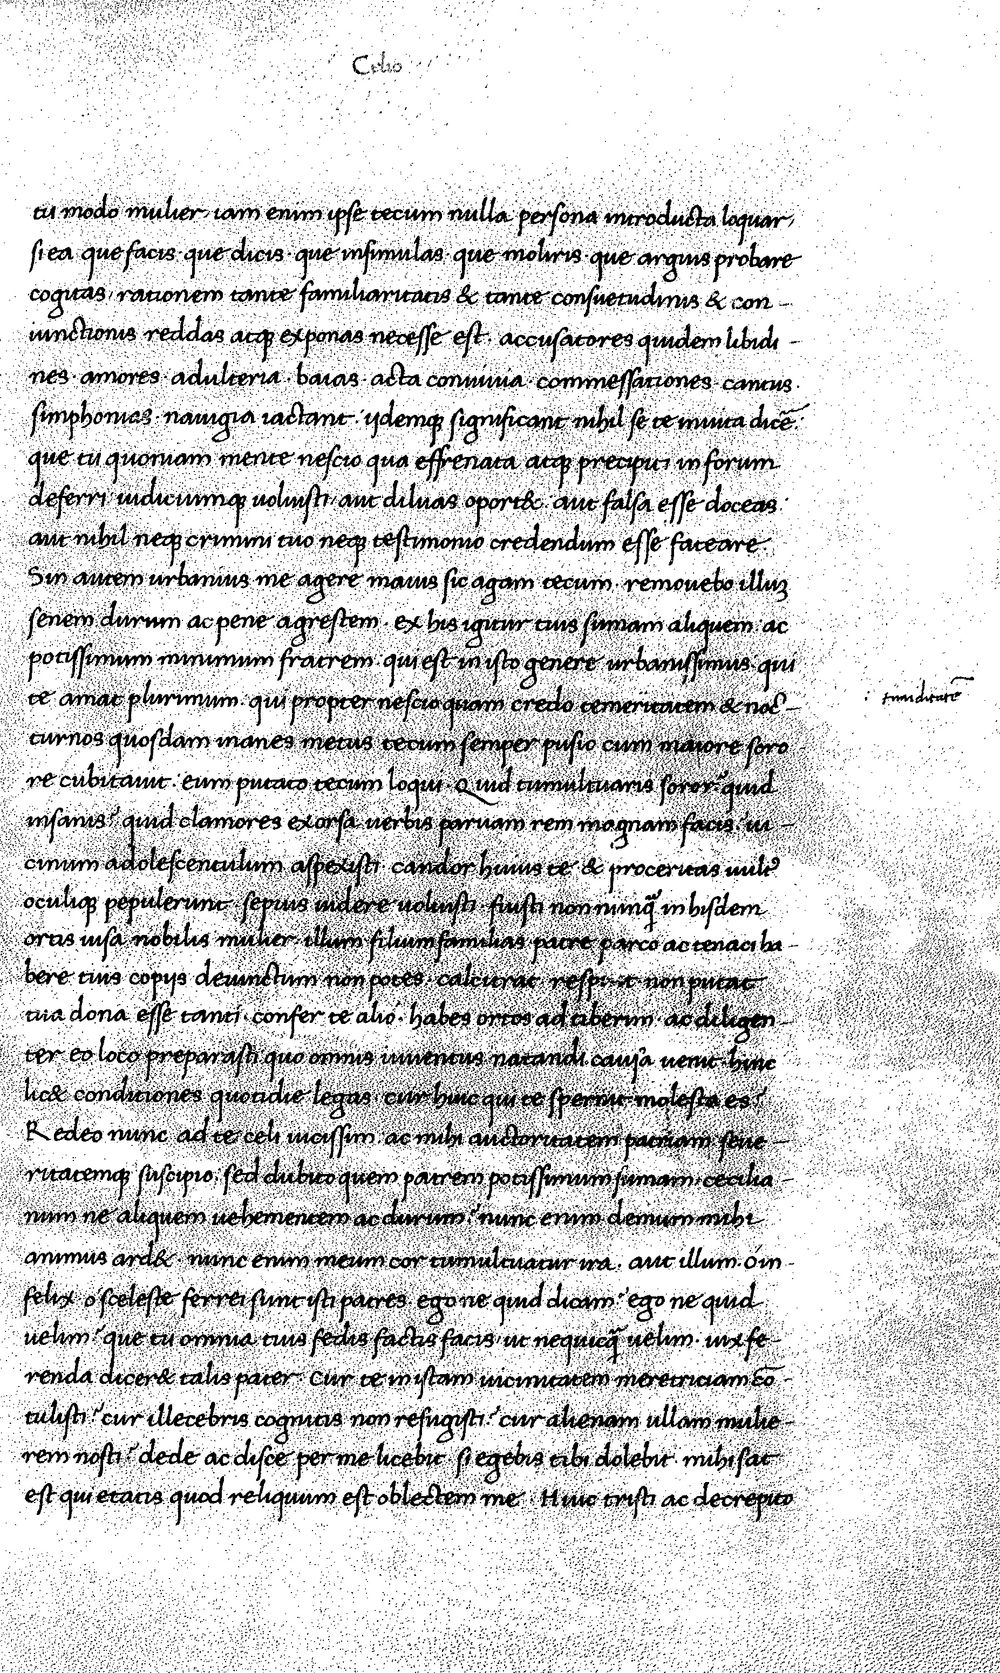 Celio
tu modo mulier, iam enim ipse tecum nulla persona introducta loquar,
si ea que facis · que dicis · que insimulas · que moliris · que arguis probare
cogitas, rationem tante familiaritatis & tante consuetudinis & con -
iunctionis reddas atqꝫ exponas necesse est · accusatores quidem libidi -
nes · amores · adulteria · baias · acta conuiuia · commessationes · cantus ·
simphonias · nauigia iactant · ijdemqꝫ significant nihil se te inuita dicẽ ·
que tu quoniam mente nescio qua effrenata atqꝫ precipiti in forum
deferri iudiciumqꝫ uoluisti · aut diluas oport& · aut falsa esse doceas ·
aut nihil neqꝫ crimini tuo neqꝫ testimonio credendum esse fateare ·
Sin autem urbanius me agere mauis sic agam tecum · remouebo illuꝫ
senem durum ac pene agrestem · ex his igitur tuis sumam aliquem · ac
potissimum minimum fratrem · qui est in isto genere urbanissimus · qui
te amat plurimum · qui propter nescio quam credo temeritatem & noc -
timiditatẽ
turnos quosdam inanes metus tecum semper pusio cum maiore soro
re cubitauit · eum putato tecum loqui · Quid tumultuaris soror? quid
insanis? quid clamores exorsa uerbis paruam rem magnam facis? ui -
cinum adolescentulum aspexisti · candor huius te & proceritas uult᾽
oculiqꝫ pepulerunt · sepius uidere uoluisti · fuisti non nunq̃ in hisdem
ortis uisa nobilis mulier · illum filium familias patre parco ac tenaci ha -
bere tuis copijs deuinctum non potes · calcitrat · respuit non putat
tua dona esse tanti · confer te alió · habes ortos ad tiberim · ac diligen -
ter eo loco preparasti quo omnis iuuentus natandi causa uenit · hinc
lic& conditiones quotidie legas · cur huic qui te spernit molesta es?
Redeo nunc ad te celi uicissim · ac mihi auctoritatem patriam seue -
ritatemqꝫ suscipio · sed dubito quem patrem potissimum sumam · cecilia -
num ne aliquem uehementem ac durum? nunc enim demum mihi
animus ard& · nunc enim meum cor tumultuatur ira · aut illum · o in -
felix o sceleste ferrei sunt isti patres · ego ne quid dicam? ego ne quid
uelim? que tu omnia tuis fedis factis facis · ut nequicq̃ uelim · uix fe -
renda dicer& talis pater · Cur te in istam uicinitatem meretriciam cõ -
tulisti? cur illecebris cognitis non refugisti? cur alienam ullam mulie -
rem nosti? dede ac disce per me licebit · si egebis tibi dolebit · mihi sat
est qui etatis quod reliquum est oblectem me · Huic tristi ac decrepito